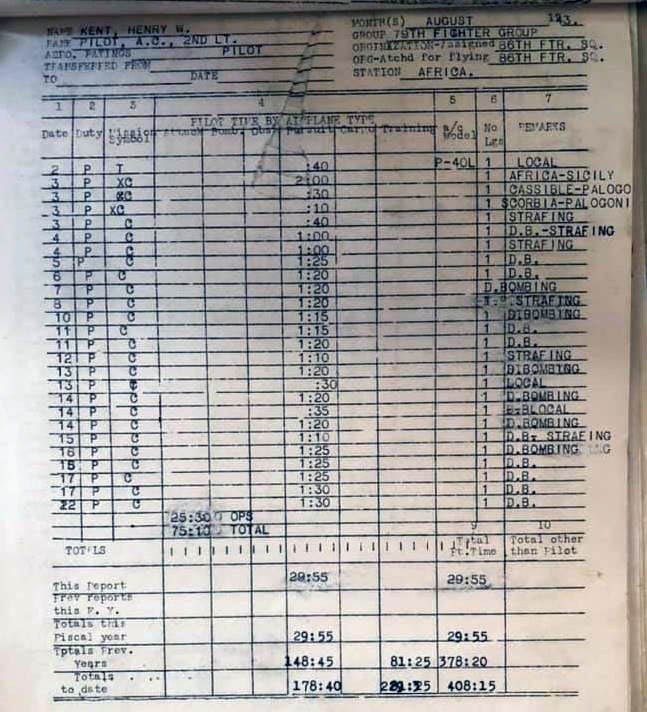 NAME KENT, HENRY W. MONTH(S) AUGUST 193.
RANK PILOT, A.C., 2ND LT. GROUP 79TH FIGHTER GROUP
AERO. RATINGS PILOT ORGINIZATION-Assigned 86TH FTR. SQ.
TRANSFERRED FROM ORG-Atchd for flying 86TH FTR. SQ.
TO DATE STATION AFRICA.
1 2 3 4 5 6 7
PILOT TIME BY AIRPLANE TYPE
Date Duty Mission Symbol Attack Bomb. Obs. Pursuit Cargo Training a/c Model No Lgs REMARKS
2 P T :40 P-40L 1 LOCAL
3 P XC 2:00 1 AFRICA-SICILY
3 P XC :30 1 CASSIBLE-PALOGO
3 P XC :10 1 SCORBIA-PALOGONI
3 P C :40 1 STRAFING
4 P C 1:00 1 D.B.-STRAFING
4 P C 1:00 1 STRAFING
5 P C 1:25 1 D.B.
6 P C 1:20 1 D.B.
7 P C 1:20 D.BOMBING
8 P C 1:20 STRAFING
10 P C 1:15 1 D.BOMBING
11 P C 1:15 1 D.B.
11 P C 1:20 1 D.B.
12 P C 1:10 1 STRAFING
13 P C 1:20 1 D.BOMBING
13 P :30 1 LOCAL
14 P C 1:20 1 D.BOMBING
14 P C :35 1 LOCAL
14 P C 1:20 1 D.BOMBING
15 P C 1:10 1 D.B. STRAFING
16 P C 1:25 1 D.BOMBING
P C 1:25 1 D.B.
17 P C 1:25 1 D.B.
17 P C 1:30 1 D.B.
22 P C 1:30 1 D.B.
25:30 OPS
75:10 TOTAL
9 10
TOTALS Total Ft.Time Total other than Pilot
This Report 29:55 29:55
Prev reports
this F. Y.
Totals this
Fiscal year 29:55 29:55
Totals Prev.
Years 148:45 81:25 378:20
Totals
to date 178:40 408:15